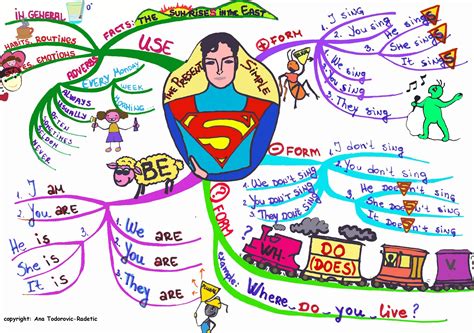 THE PRESENT
SIMPLE
S
USE
FACTS: THE SUN RISES IN THE EAST
IN GENERAL
HABITS, ROUTINGS
EMOTIONS
ADVERBS
EVERY MONDAY
WEEK
MORNING
ALWAYS
USUALLY
OFTEN
SOMETIMES
SELDOM
NEVER
+ FORM
1. I sing
2. You sing
3. He sings
She sings
It sings
1. We sing
2. You sing
3. They sing
- FORM
1. I don't sing
2. You don't sing
3. He doesn't sing
She doesn't sing
It doesn't sing
1. We DON'T sing
2. You DON'T sing
3. They DON'T sing
BE
1. I am
2. You are
3. He is
She is
It is
1. We are
2. You are
3. They are
? FORM
WH-
DO
(DOES)
V.
?
example:
Where Do you live?
copyright: Ana Todorovic-Radetic